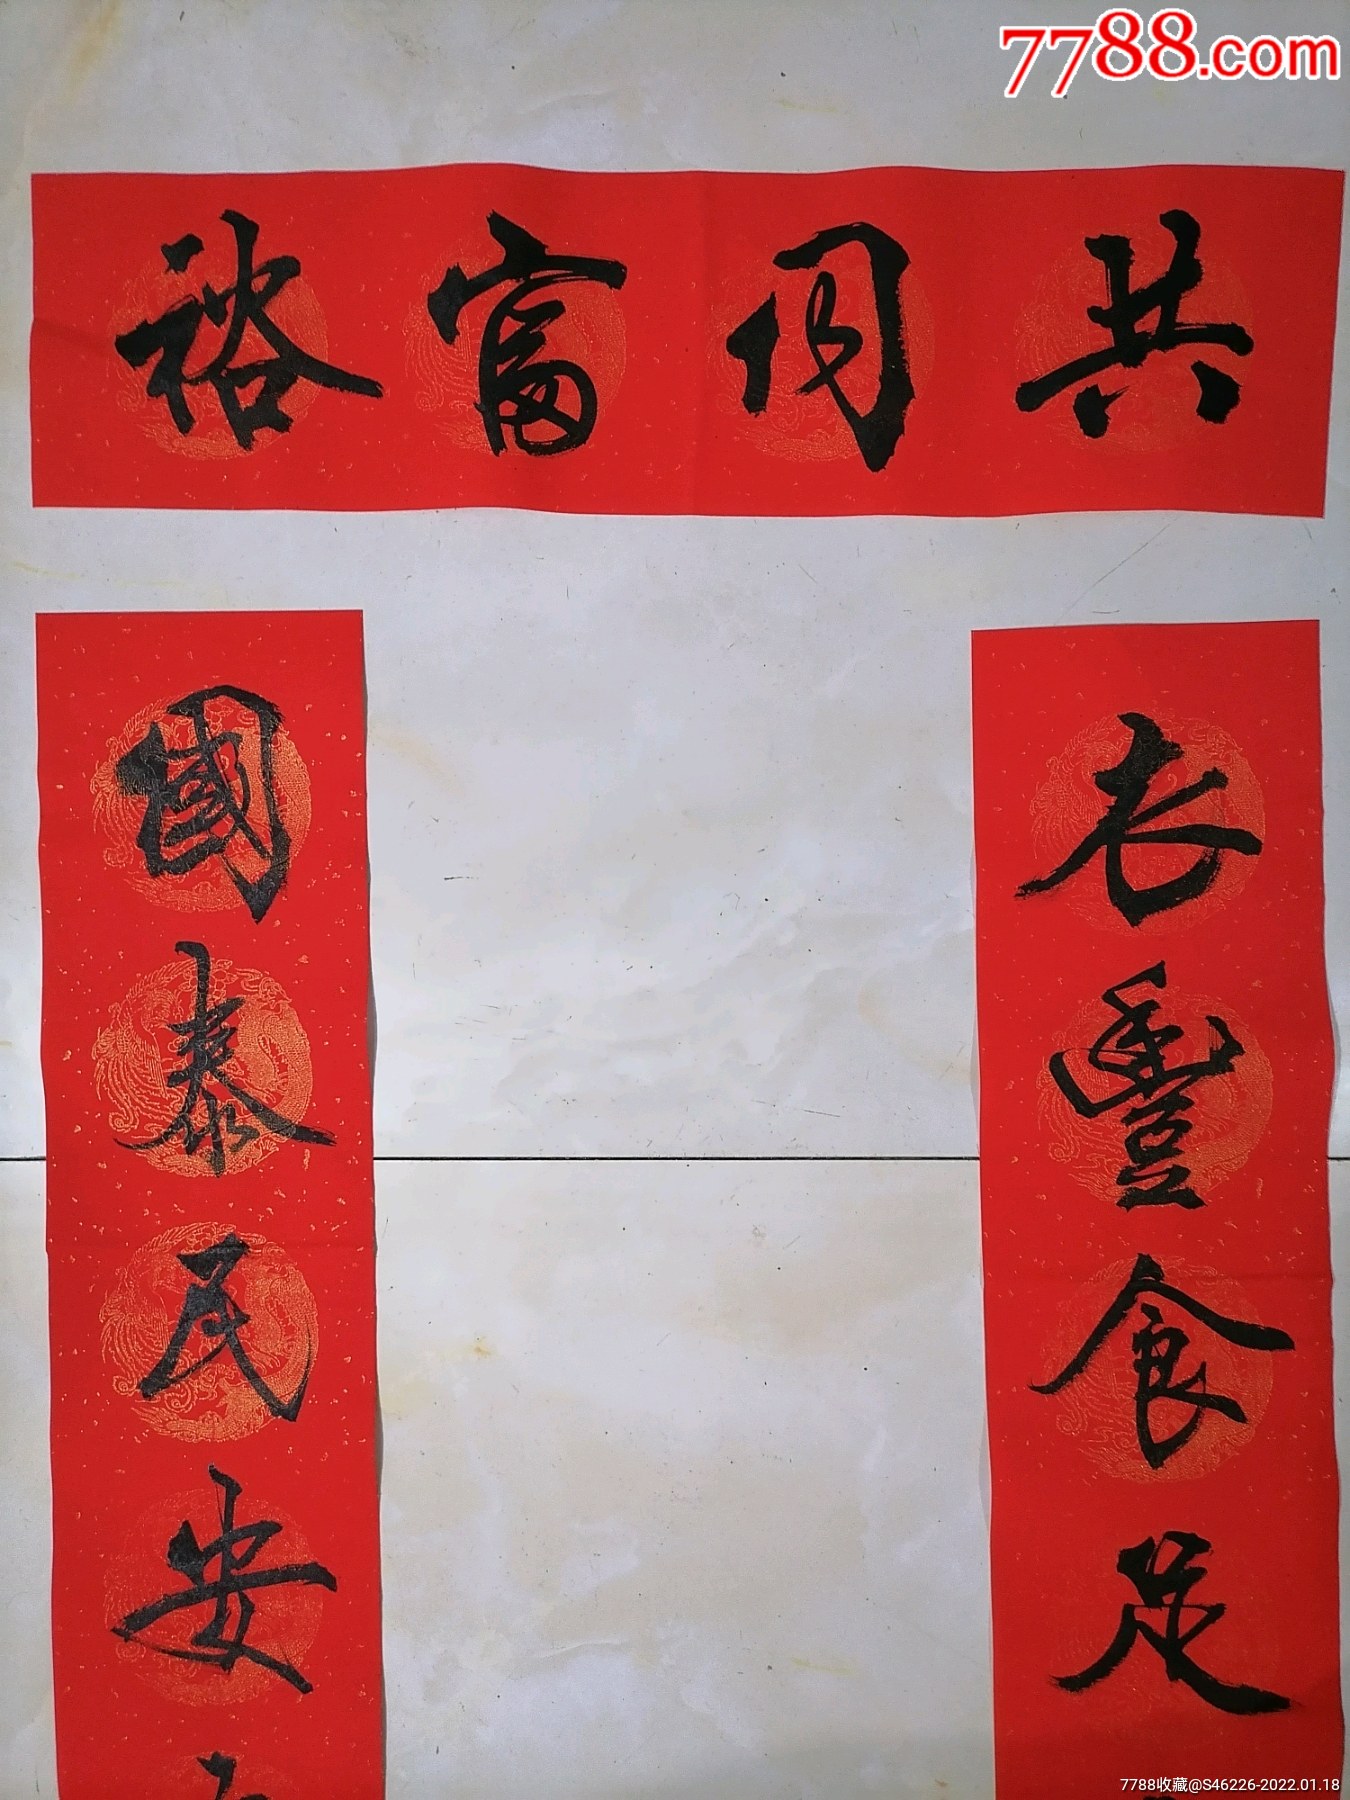 7788.com
共同富裕
衣豐食足
國泰民安
7788收藏@S46226-2022.01.18